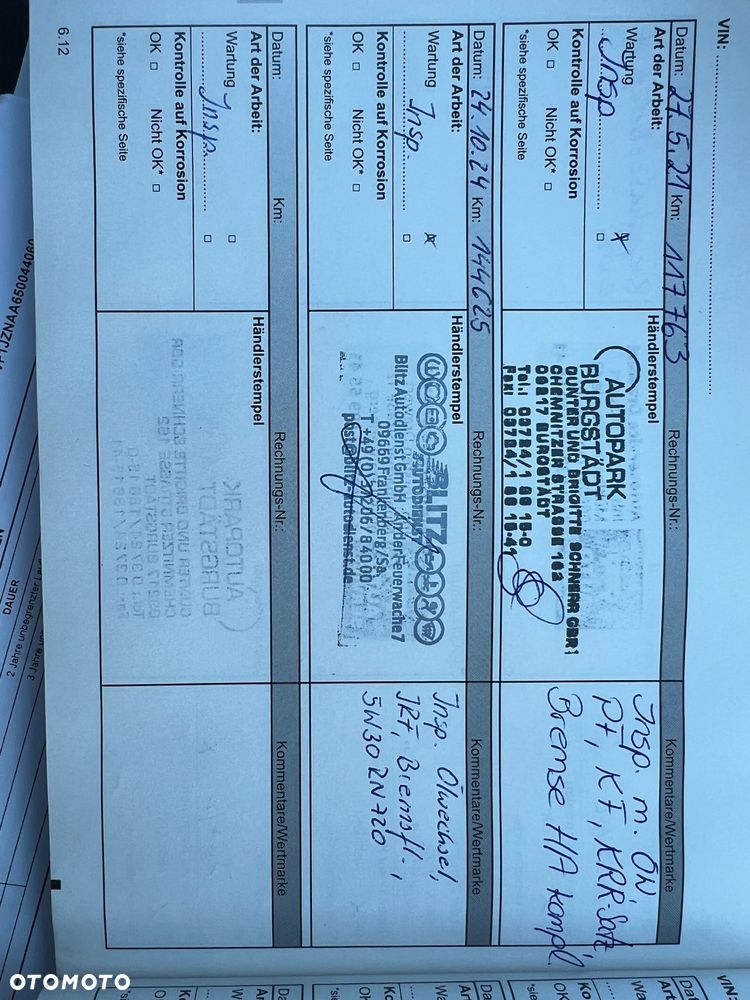 VIN:
Datum: 27.5.21 Km: 117763
Rechnungs-Nr.:
Kommentare/Wertmarke
Art der Arbeit:
Wartung
Insp.
Kontrolle auf Korrosion
OK Nicht OK*
*siehe spezifische Seite
Händlerstempel
AUTOPARK
BURGSTÄDT
GUNTER UND BRIGITTE SCHNERR GBR
CHEMNITZER STRASSE 162
09217 BURGSTÄDT
Insp. m. ÖW
PF, KF, KRR-Satz,
Bremse HA kompl.
Datum: 24.10.24 Km: 144625
Rechnungs-Nr.:
Kommentare/Wertmarke
Art der Arbeit:
Wartung
Insp.
Kontrolle auf Korrosion
OK Nicht OK*
*siehe spezifische Seite
Händlerstempel
BLITZ
AUTODIENST
Blitz Autodienst GmbH
An der Feuerwache 7
09669 Frankenberg/Sa.
post@blitz-autodienst.de
Insp. Ölwechsel,
IRF, Bremsfl.,
5W30 RN720
Datum:
Km:
Rechnungs-Nr.:
Kommentare/Wertmarke
Art der Arbeit:
Wartung
Insp.
Kontrolle auf Korrosion
OK Nicht OK*
*siehe spezifische Seite
Händlerstempel
6.12
DAUER
2 Jahre unbegrenzter
3 Jahre
OTOMOTO